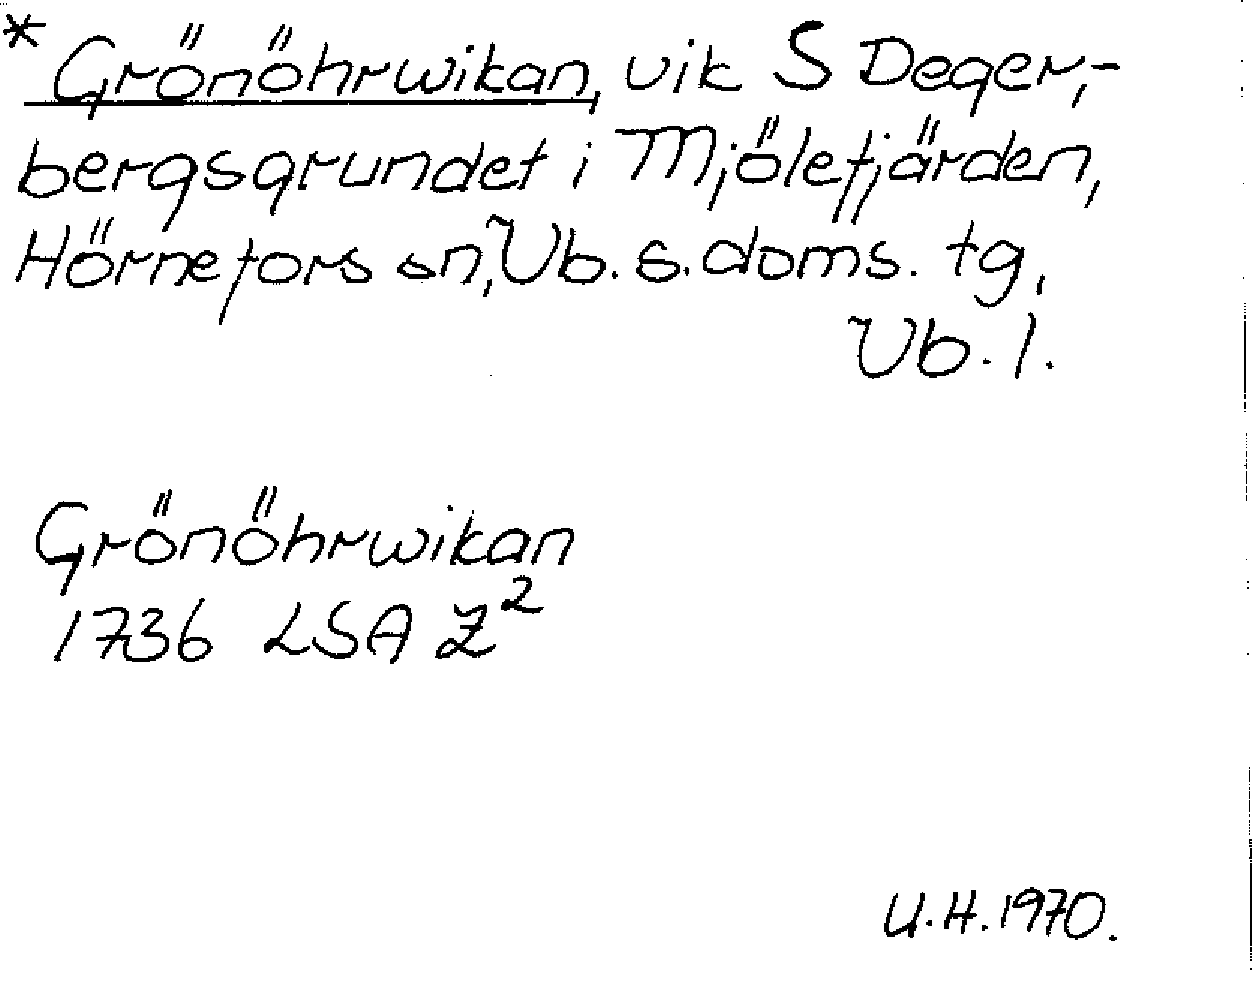 * Grönöhrwikan, vik S Deger,-
bergsgrundet i Mjölefjärden,
Hörnefors sn, Vb. s. doms. tg,
Vb. l.
Grönöhrwikan
1736 LSA Z²
U.H. 1970.